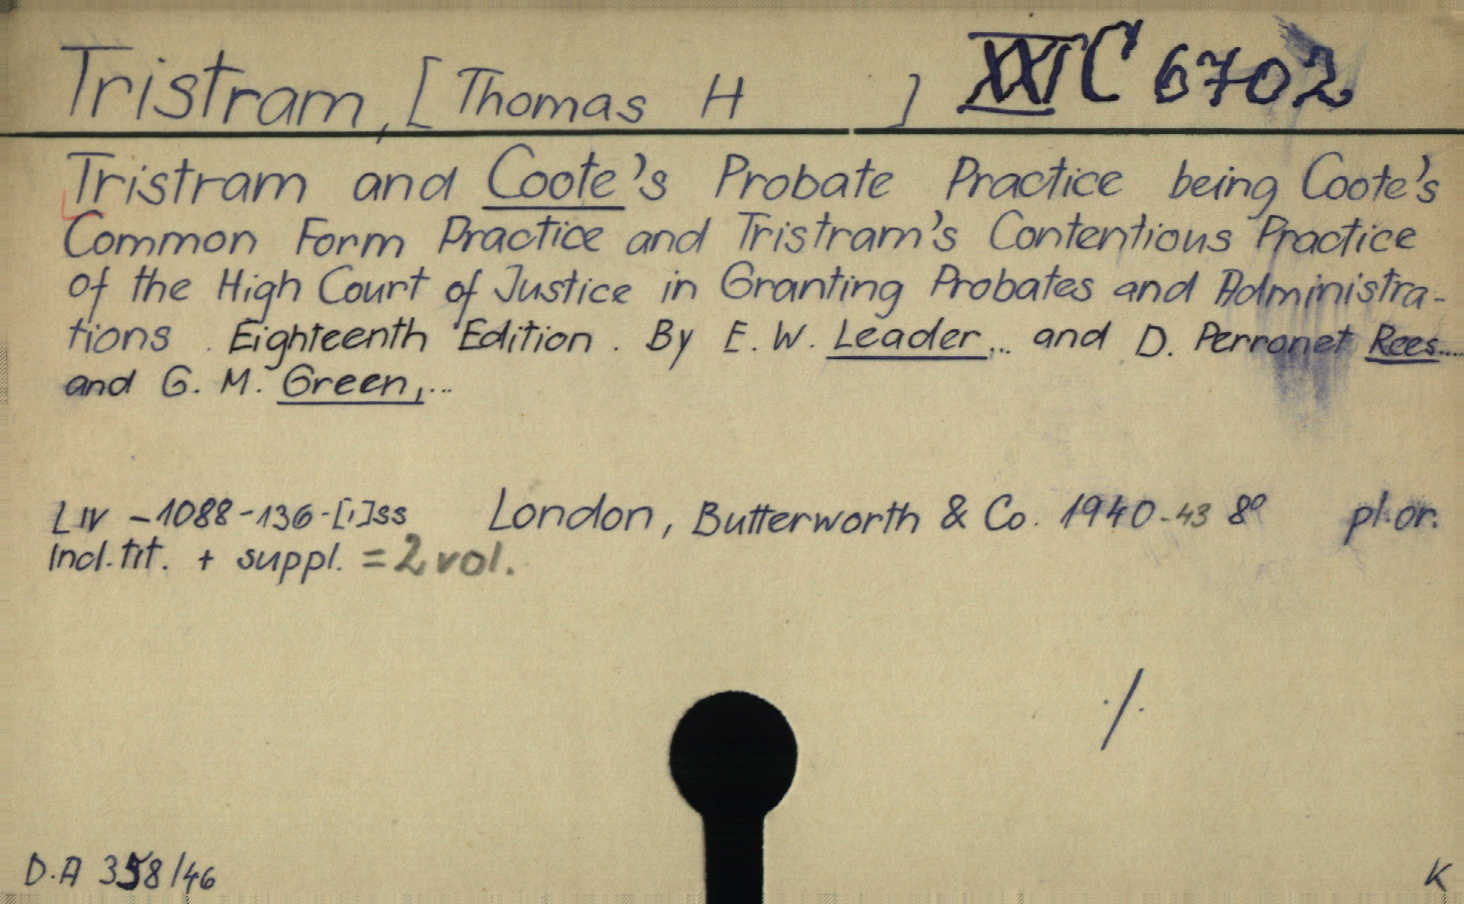 Tristram, [Thomas H ] XXI C 6702
Tristram and Coote's Probate Practice being Coote's
Common Form Practice and Tristram's Contentious Practice
of the High Court of Justice in Granting Probates and Administra-
tions. Eighteenth Edition. By E. W. Leader... and D. Perronet Rees....
and G. M. Green,...
LIV - 1088-136-[1]ss London, Butterworth & Co. 1940-43 8° pl. or.
Incl. tit. + suppl. = 2 vol.
./.
D.A 358/46 K